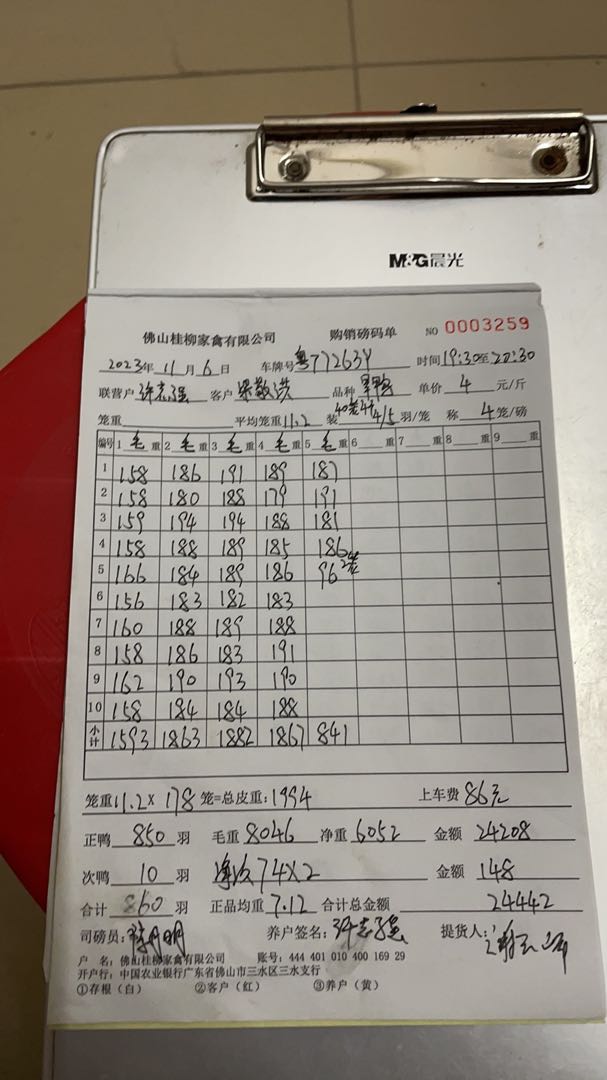 M&G晨光
佛山桂柳家禽有限公司 购销磅码单 NO 0003259
2023年 11月 6日 车牌号 时间19:30至20:30
联营户 许志强 客户 品种 单价 4 元/斤
笼重 平均笼重11.2 装 4/5 羽/笼 称 4 笼/磅
编号 1 毛 重 2 毛 重 3 毛 重 4 毛 重 5 毛 重 6 重 7 重 8 重 9 重
1 158 186 191 189 187
2 158 180 188 179 191
3 159 194 194 188 181
4 158 188 189 185 186
5 166 184 189 186 96 2笼
6 156 183 182 183
7 160 188 189 188
8 158 186 183 191
9 162 190 193 190
10 158 184 184 188
小计 1593 1863 1882 1867 841
笼重11.2×178 笼=总皮重:1994 上车费 86元
正鸭 850 羽 毛重8046 净重6052 金额 24208
次鸭 10 羽 74×2 金额 148
合计 860 羽 正品均重 7.12 合计总金额 24442
司磅员: 养户签名: 许志强 提货人:
户 名: 佛山桂柳家禽有限公司 账号: 444 401 010 400 169 29
开户行: 中国农业银行广东省佛山市三水区三水支行
①存根(白) ②客户(红) ③养户(黄)